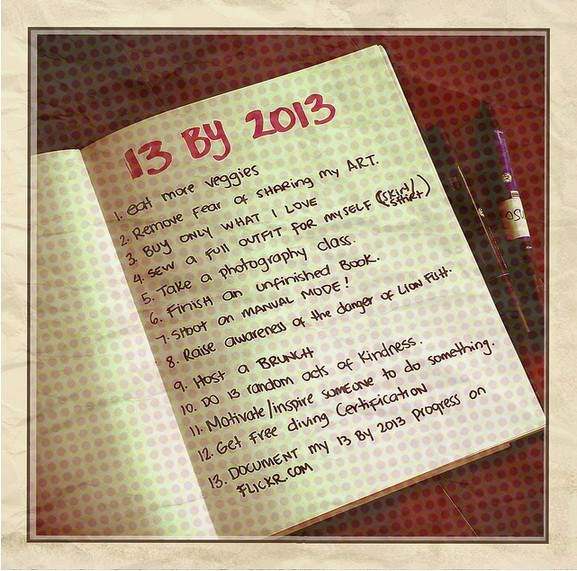 13 BY 2013
1. eat more veggies
2. Remove fear of sharing my ART.
3. Buy only what I love
4. Sew a full outfit for myself (skirt/
shirt)
5. Take a photography class.
6. Finish an unfinished Book.
7. Shoot on MANUAL MODE!
8. Raise awareness of the danger of Lion Fish.
9. Host a BRUNCH
10. Do 13 random acts of Kindness.
11. Motivate/inspire someone to do something.
12. Get free diving Certification
13. Document my 13 By 2013 Progress on
FLICKR.COM